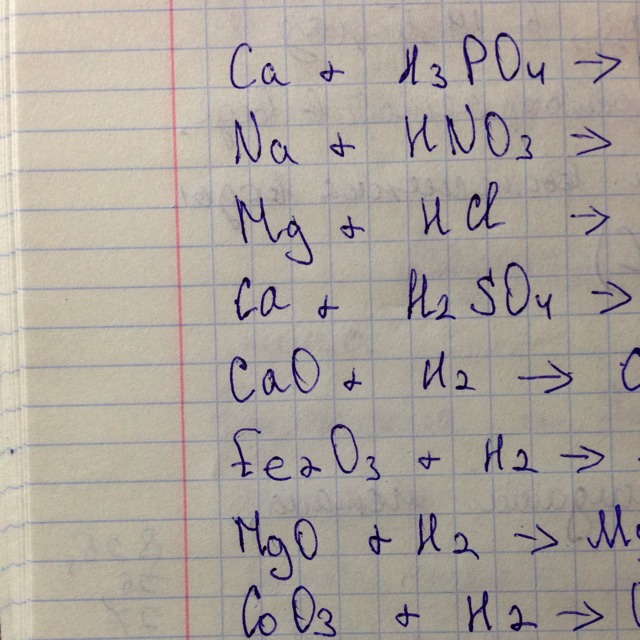 Ca + H3PO4 →
Na + HNO3 →
Mg + HCl →
Ca + H2SO4 →
CaO + H2 → C
Fe2O3 + H2 →
MgO + H2 → Mg
CoO3 + H2 →